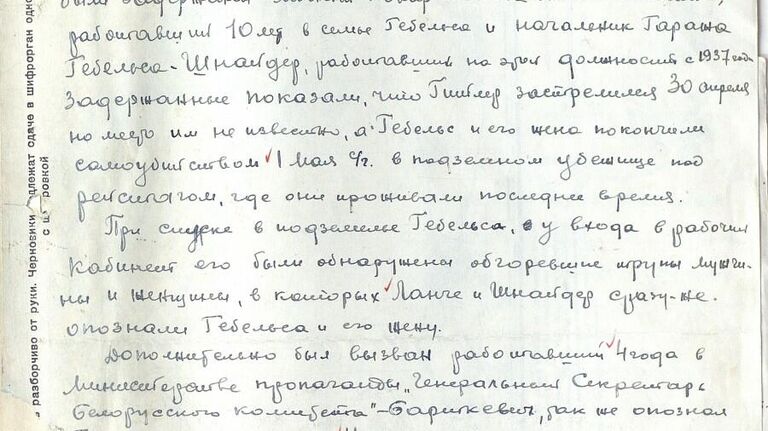 были задержаны
работавший 10 лет в семье Гебельса и начальник Гаража
Гебельса - Шнайдер, работавший на этой должности с 1937 года
Задержанные показали, что Гитлер застрелился 30 апреля
но место им не известно, а Гебельс и его жена покончили
самоубийством 1 мая с/г. в подземном убежище под
рейхстагом, где они проживали последнее время.
При спуске в подземелье Гебельса, у входа в рабочий
кабинет его были обнаружены обгоревшие трупы мужчи-
ны и женщины, в которых Ланге и Шнайдер сразу-же.
опознали Гебельса и его жену.
Дополнительно был вызван работавший 4 года в
министерстве пропаганды "Генеральный Секретарь
Белорусского Комитета" - Бариткевич, так же опознал
разборчиво от руки. Черновики подлежат сдаче в шифрорган одно
с шифровкой